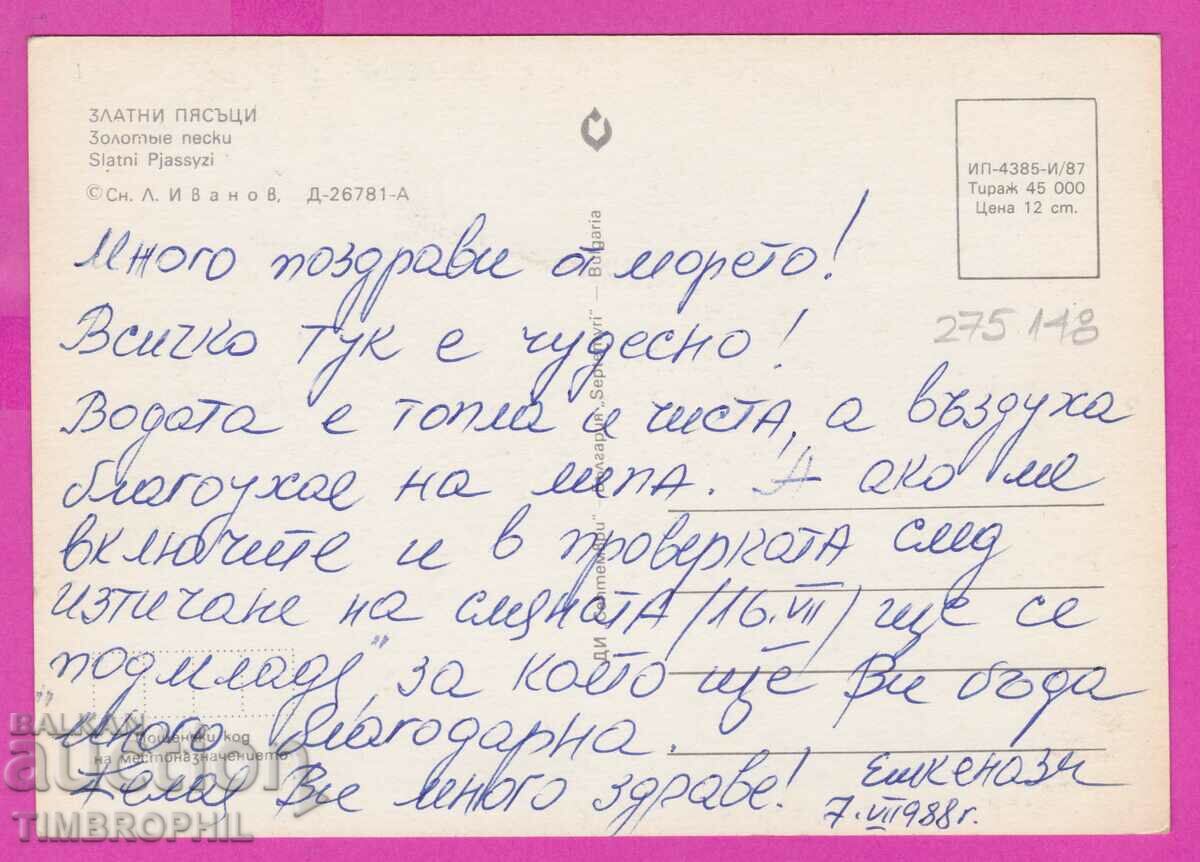 ЗЛАТНИ ПЯСЪЦИ
Золотые пески
Slatni Pjassyzi
© Сн. Л. Иванов, Д-26781-А
ИП-4385-И/87
Тираж 45 000
Цена 12 ст.
275148
ДИ „Септември" — България „Septemvri" — Bulgaria
Много поздрави от морето!
Всичко тук е чудесно!
Водата е топла и чиста, а въздуха
благоухае на липа. А ако ме
включите и в проверката след
изтичане на смяната /16.VII/ ще се
„подмладя", за което ще Ви бъда
много благодарна.
Желая Ви много здраве!
Ешкенази
7.VII 1988 г.
Пощенски код
на местоназначението
BALKAN
auction
TIMBROPHIL